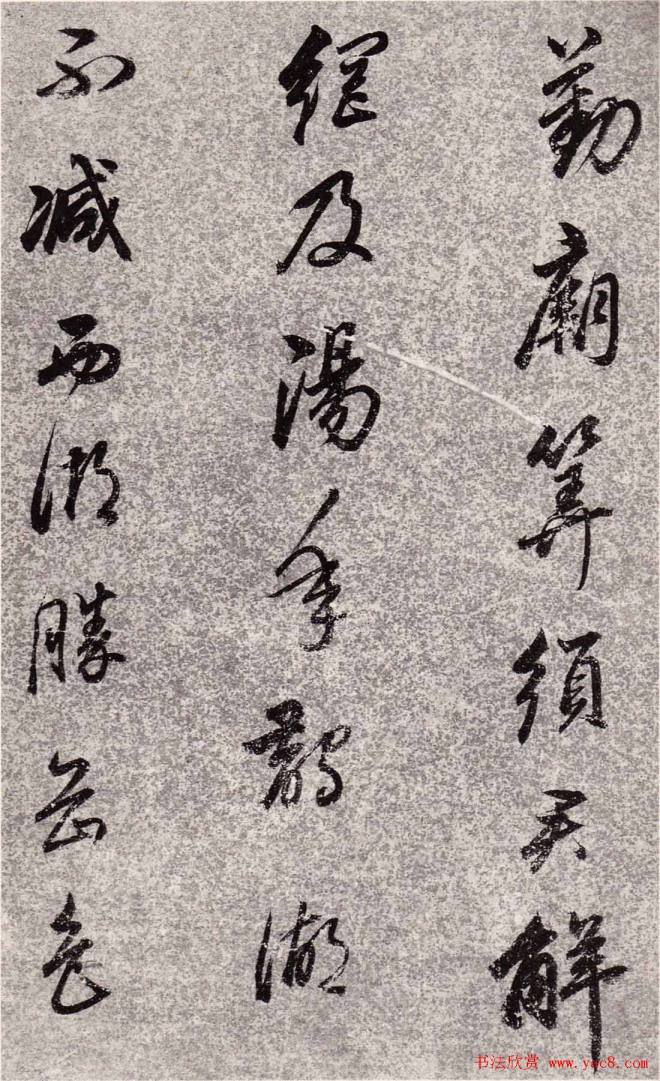 勤廟筭須天解
網及湯年鵲湖
不減西湖勝岳色
书法欣赏 www.yac8.com